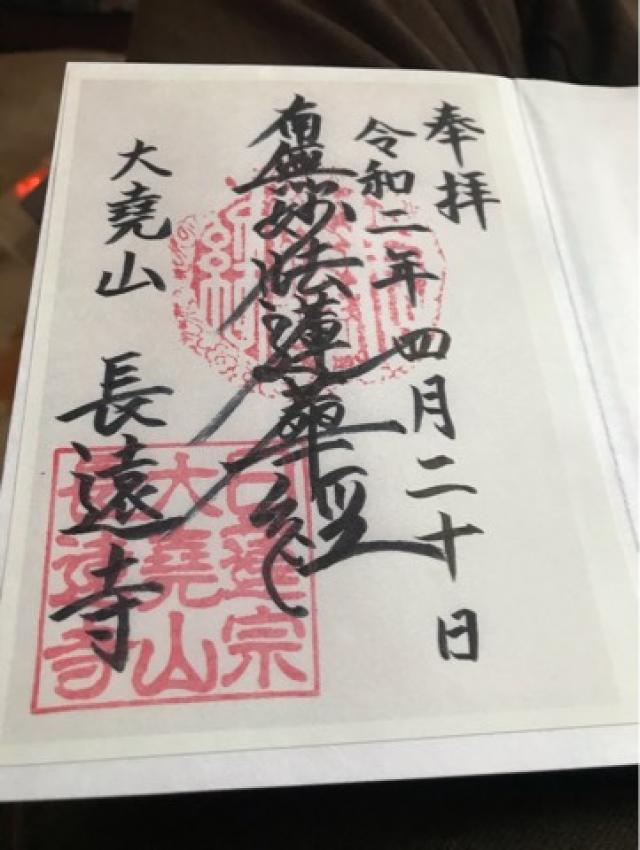 奉拝
令和二年四月二十日
南無妙法蓮華経
大堯山 長遠寺
日蓮宗
大堯山
長遠寺